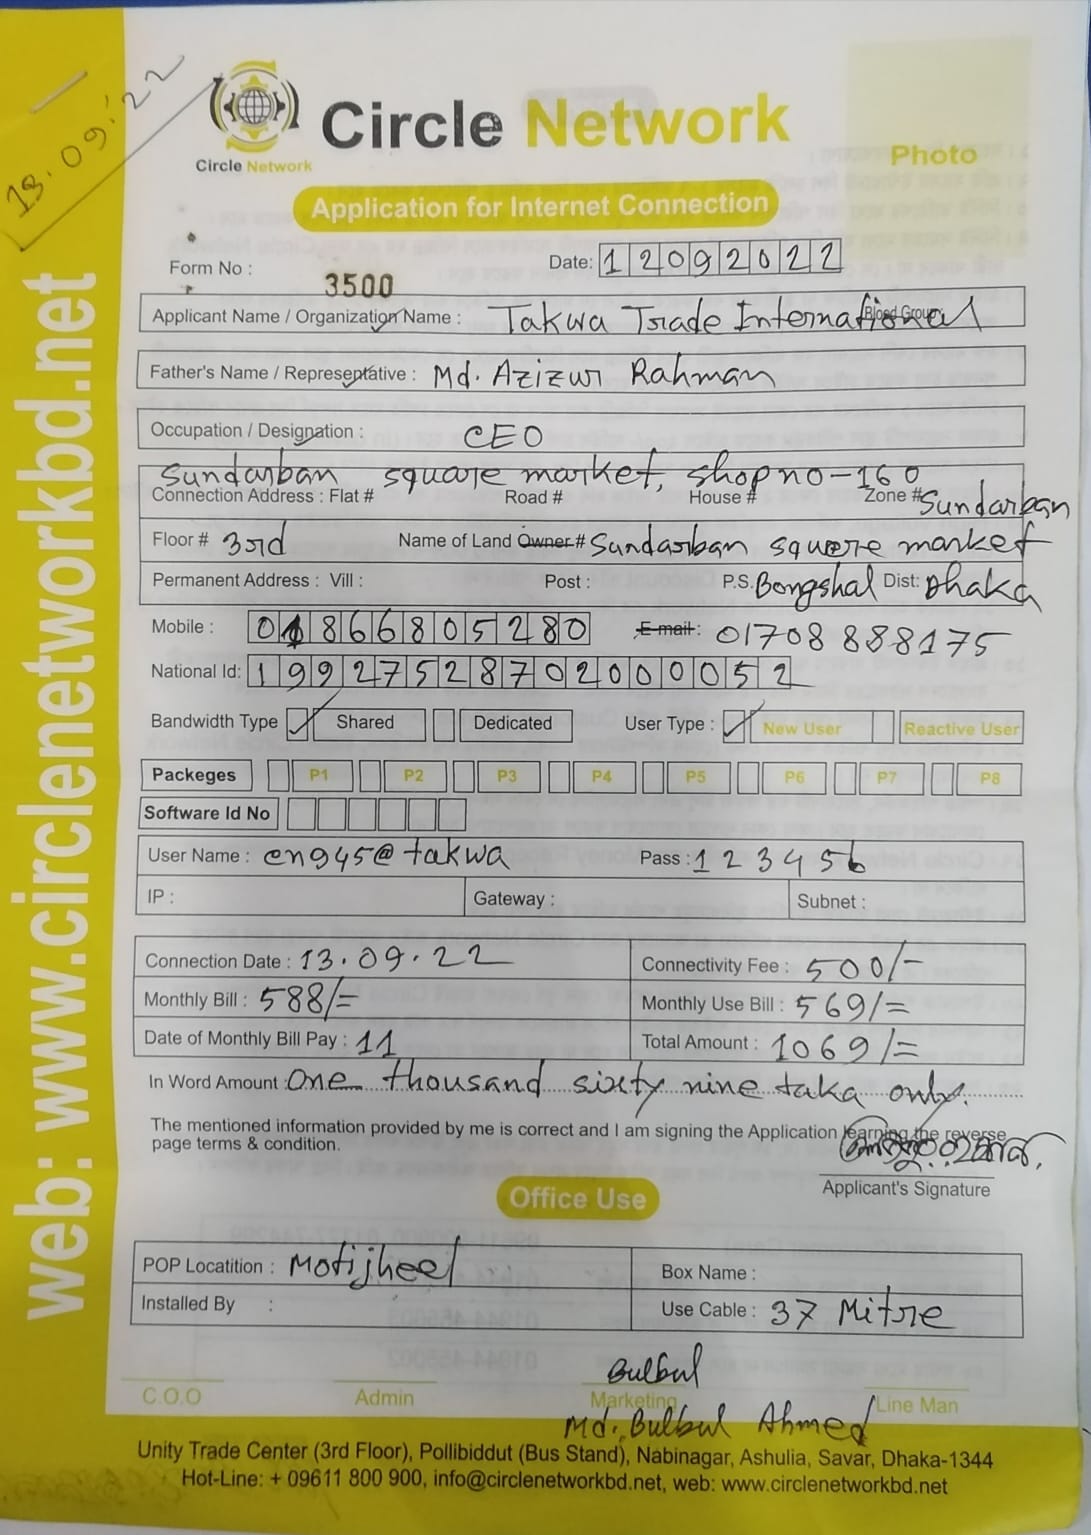 13.09.22
Circle Network
Circle Network
Photo
Application for Internet Connection
Form No : 3500
Date: 12092022
Applicant Name / Organization Name : Takwa Trade International Blood Group
Father's Name / Representative : Md. Azizur Rahman
Occupation / Designation : CEO
Sundarban square market, shop no-160
Connection Address : Flat # Road # House # Zone # Sundarban
Floor # 3rd Name of Land Owner # Sundarban square market
Permanent Address : Vill : Post : P.S. Bongshal Dist: Dhaka
Mobile : 01866805280 E-mail : 01708888175
National Id: 19927528702000052
Bandwidth Type Shared Dedicated User Type : New User Reactive User
Packeges P1 P2 P3 P4 P5 P6 P7 P8
Software Id No
User Name : eng45@takwa Pass : 123456
IP : Gateway : Subnet :
Connection Date : 13.09.22 Connectivity Fee : 500/-
Monthly Bill : 588/= Monthly Use Bill : 569/=
Date of Monthly Bill Pay : 11 Total Amount : 1069/=
In Word Amount : One thousand sixty nine taka only.
The mentioned information provided by me is correct and I am signing the Application learning the reverse
page terms & condition.
Applicant's Signature
Office Use
POP Locatition : Motijheel Box Name :
Installed By : Use Cable : 37 Mitre
Bulbul
C.O.O Admin Marketing Line Man
Md. Bulbul Ahmed
Unity Trade Center (3rd Floor), Pollibiddut (Bus Stand), Nabinagar, Ashulia, Savar, Dhaka-1344
Hot-Line: + 09611 800 900, info@circlenetworkbd.net, web: www.circlenetworkbd.net
web: www.circlenetworkbd.net